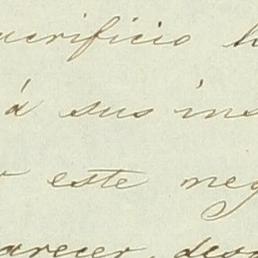 sacrificio h
á sus ins
este neg
parecer, des